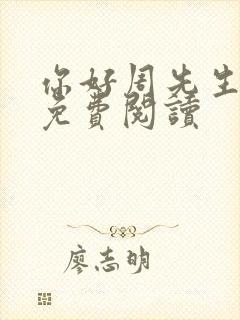 你好周先生
免費閱讀
廖志明